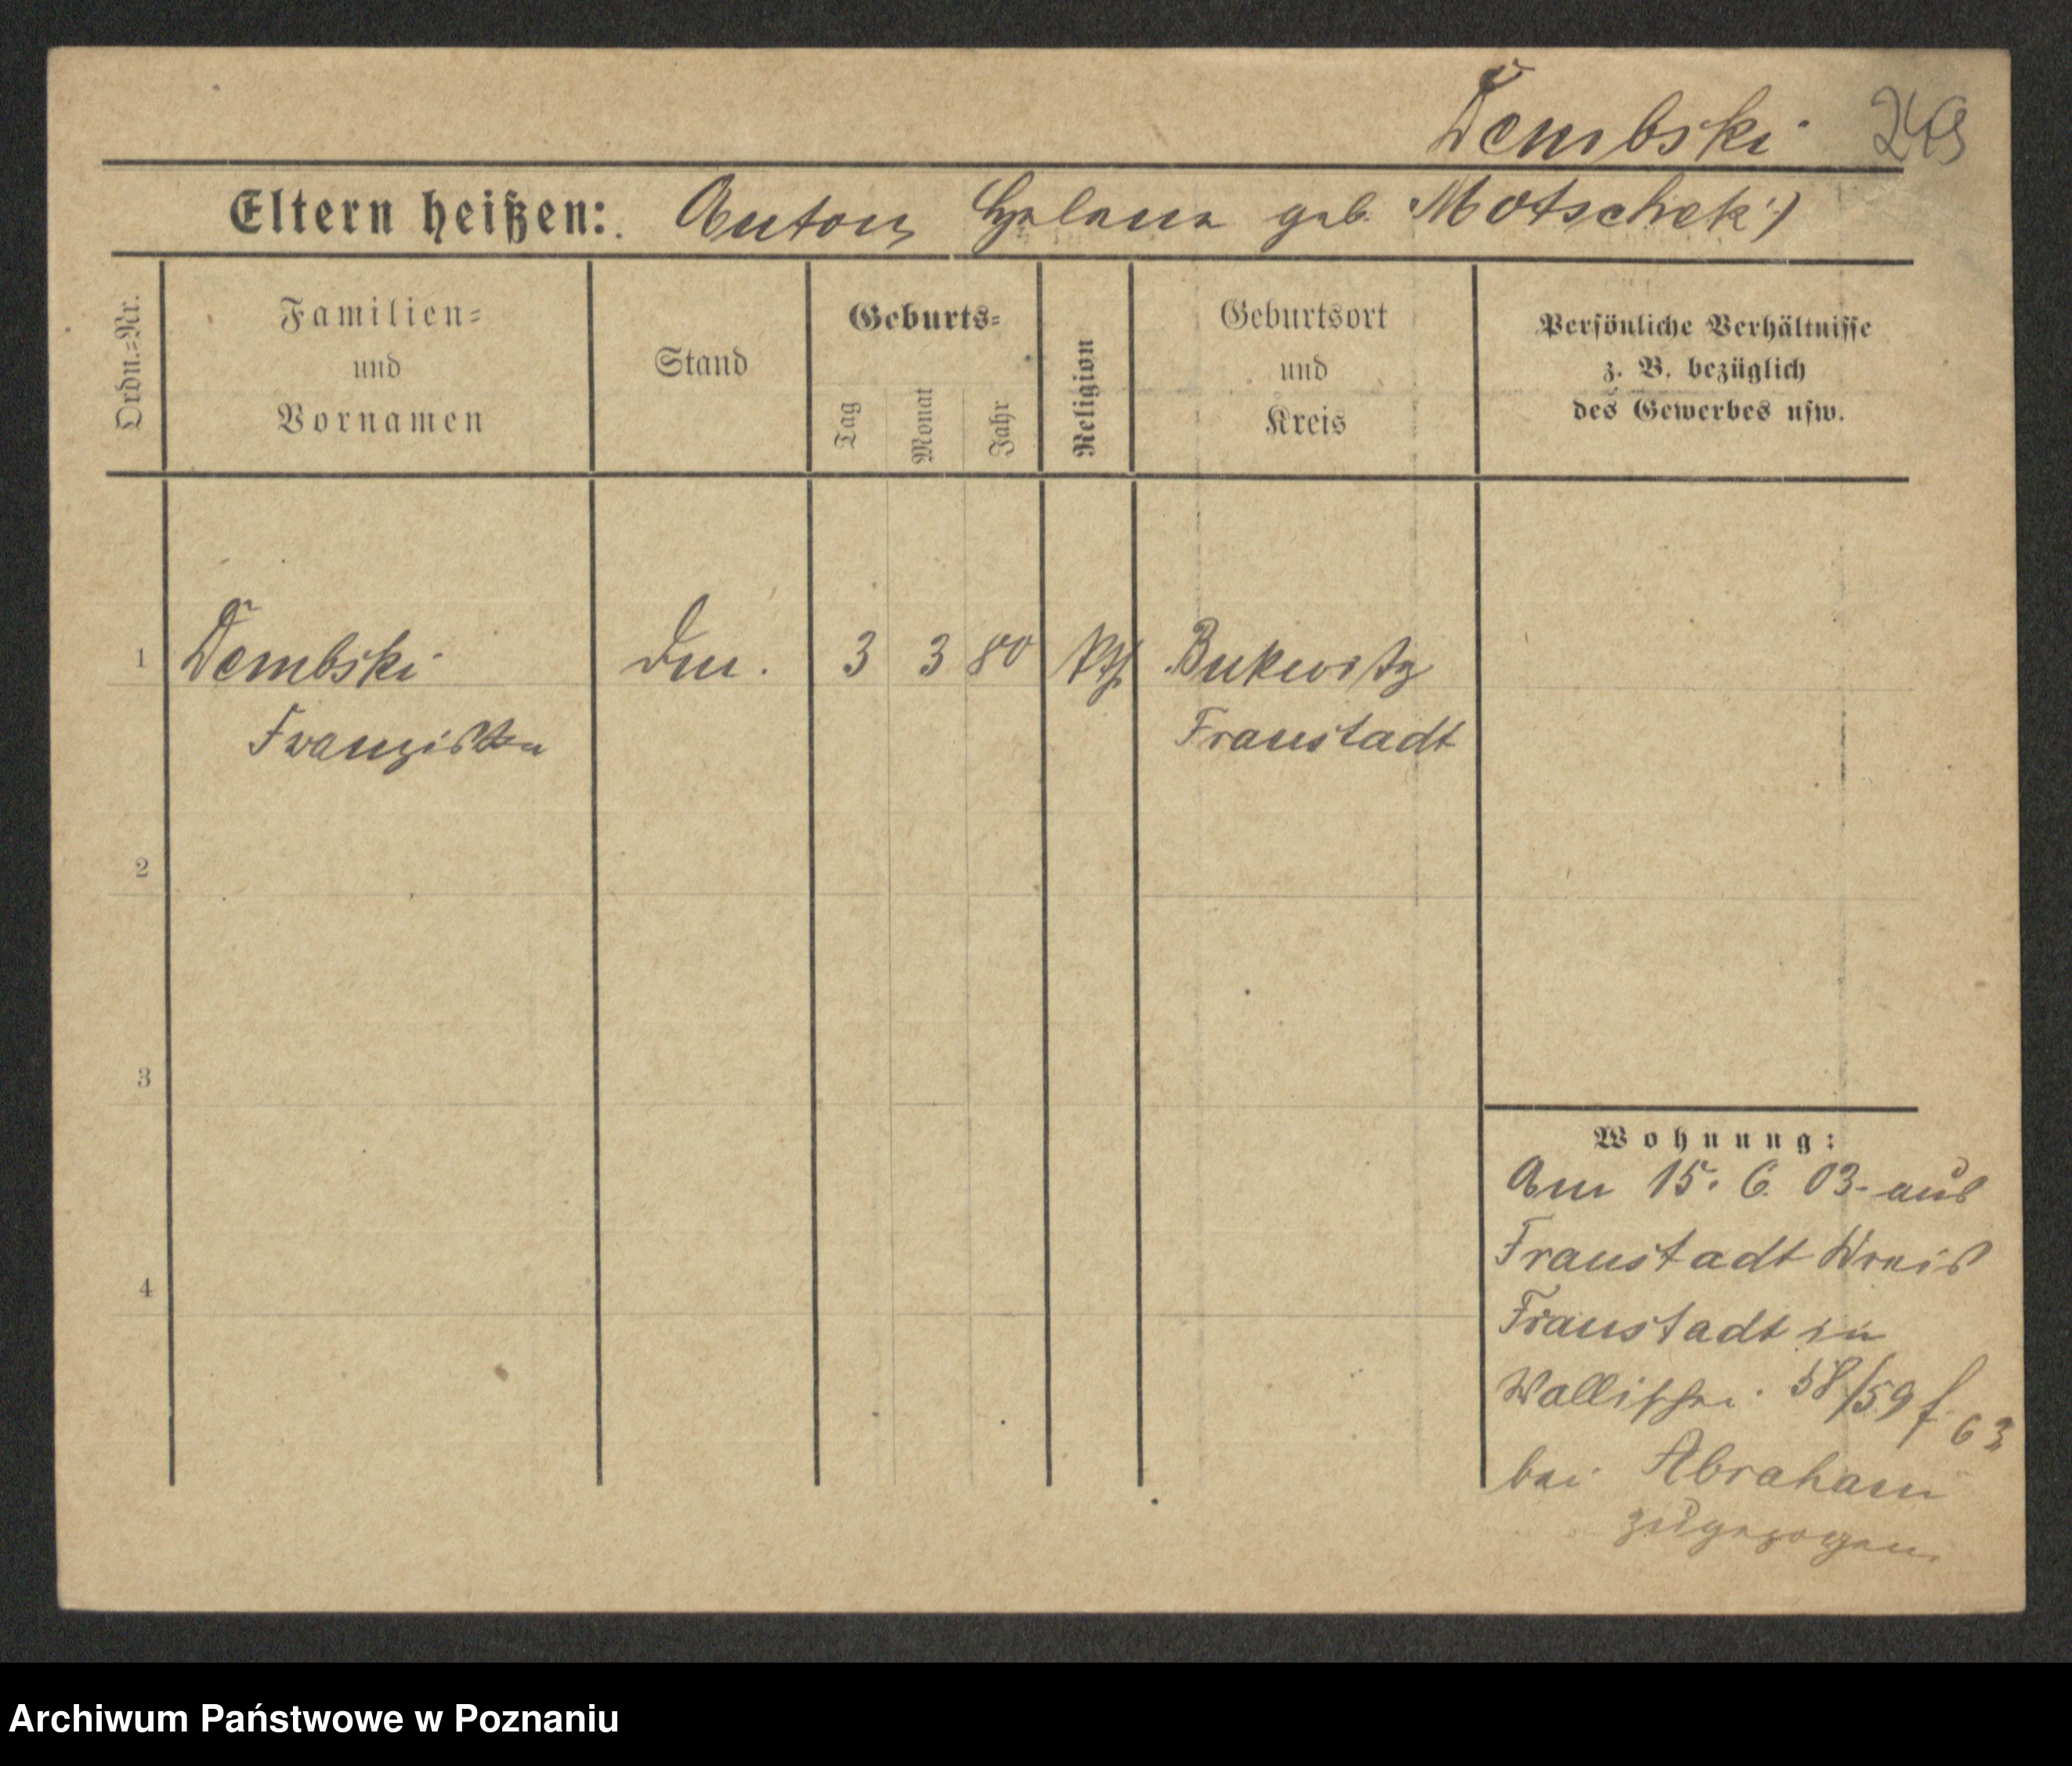 Dembski 249
Eltern heißen: Anton Helena geb. Motschek
Ordn.=Nr.
Familien=
und
Vornamen
Stand
Geburts=
Tag
Monat
Jahr
Religion
Geburtsort
und
Kreis
Persönliche Verhältnisse
z. B. bezüglich
des Gewerbes usw.
1 Dembski 3 3 80 kth Bukwitz
Franziska Fraustadt
2
3
4
Wohnung:
Am 15. 6. 03. aus
Fraustadt Kreis
Fraustadt in
Wallischei 58/59 f. 63
bei Abraham
zugezogen.
Archiwum Państwowe w Poznaniu